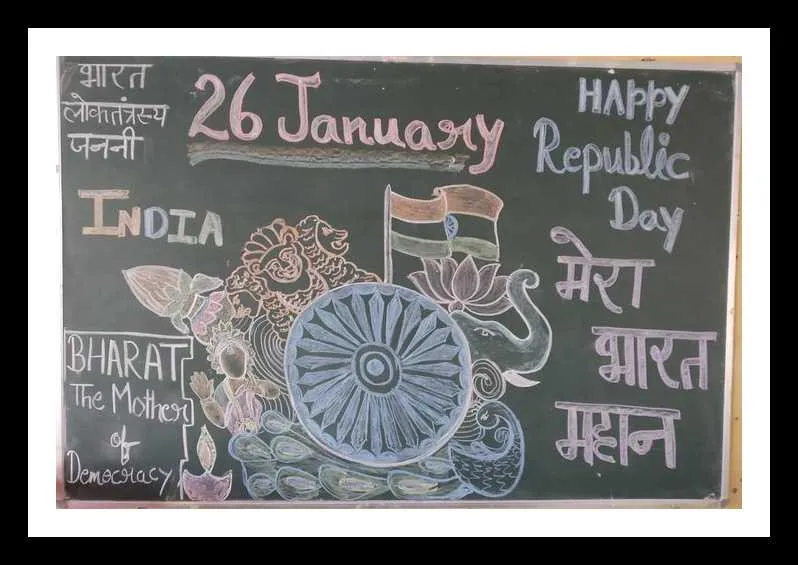 भारत
लोकतंत्रस्य
जननी
26 January
HAPPY
Republic
Day
INDIA
मेरा
भारत
महान
BHARAT
The Mother
of
Democracy